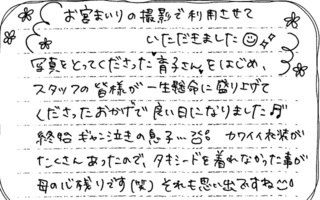 お宮まいりの撮影で利用させて
いただきました
写真をとってくださった育子さんをはじめ、
スタッフの皆様が一生懸命に盛り上げて
くださったおかげで良い日になりました
終始ギャン泣きの息子… カワイイ衣装が
たくさんあったので、タキシードを着れなかった事が
母の心残りです(笑) それも思い出ですね